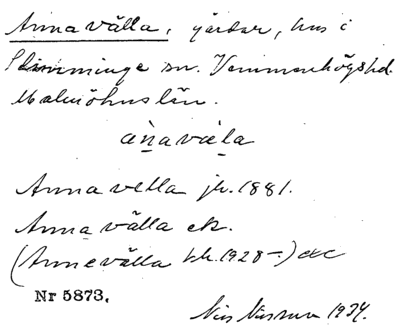 Annavälla, gårdar, hus i
Slimminge sn. Vemmenhögs hd.
Malmöhus län.
àṉavæḻa
Annavella jb. 1881.
Anna välla ek.
(Annevälla bk. 1928-)
Nr 5873.
Nils 1934.